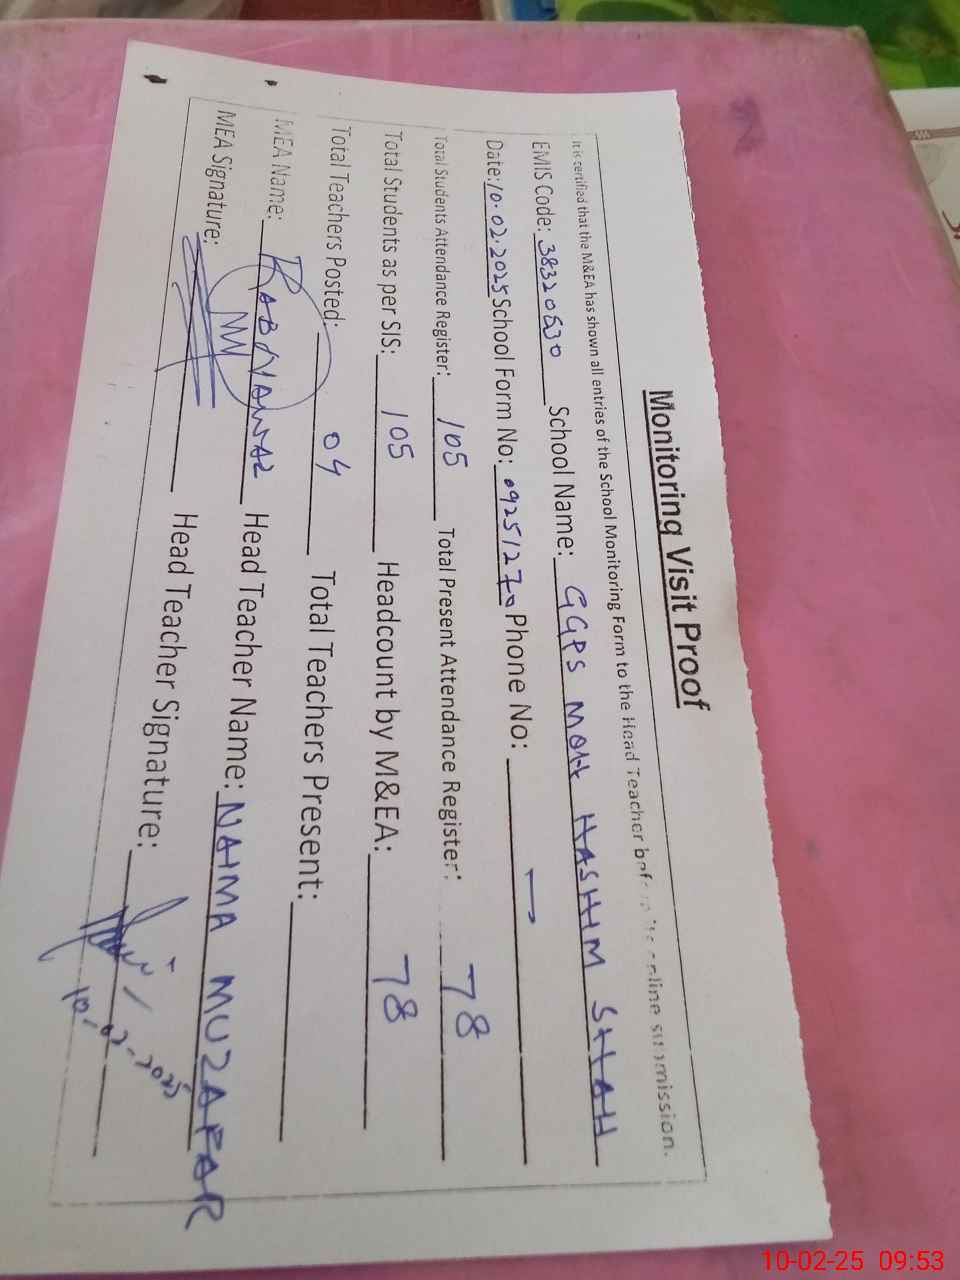 Monitoring Visit Proof
It is certified that the M&EA has shown all entries of the School Monitoring Form to the Head Teacher before its online submission.
EMIS Code: 38320630 School Name: GGPS MOH HASHIM SHAH
Date: 10.02.2025 School Form No: 09251270 Phone No: —
Total Students Attendance Register: 105 Total Present Attendance Register: 78
Total Students as per SIS: 105 Headcount by M&EA: 78
Total Teachers Posted: 04 Total Teachers Present:
MEA Name: RAB NAWAZ Head Teacher Name: NAIMA MUZAFAR
MEA Signature: Head Teacher Signature:
10-02-2025
10-02-25 09:53